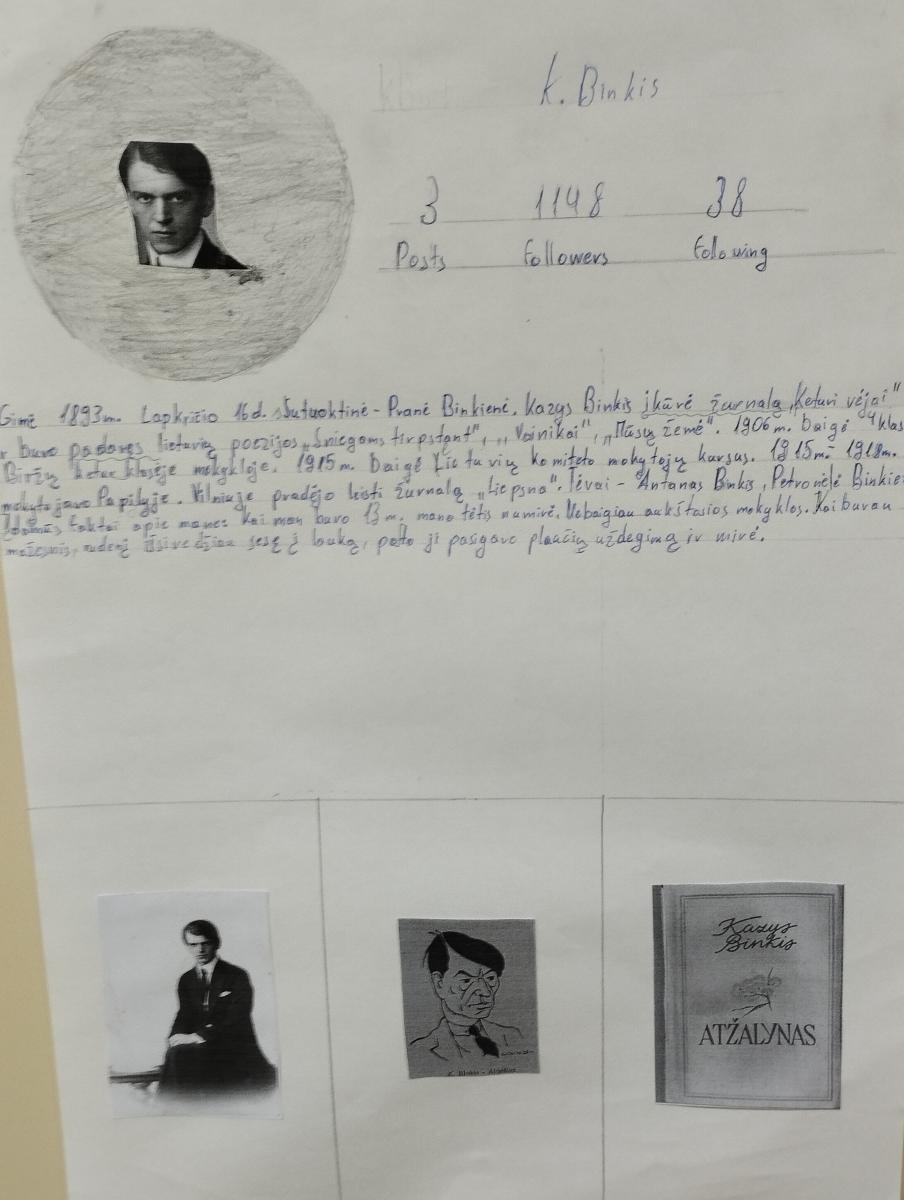 K. Binkis
3 1148 38
Posts followers following
Gimė 1893m. Lapkričio 16d. Sutuoktinė - Pranė Binkienė. Kazys Binkis įkūrė žurnalą „Keturi vėjai"
ir buvo padaręs lietuvių poezijos „Sniegams tirpstant", „Vainikai", „Mūsų žemė". 1906m. baigė 4 klas
Biržų keturklasėje mokykloje. 1915m. baigė Lietuvių komiteto mokytojų kursus. 1915m. - 1918m.
mokytojavo Papilyje. Vilniuje pradėjo leisti žurnalą „Liepsna". Tėvai - Antanas Binkis, Petronėlė Binkie
Įdomūs faktai apie mane: Kai man buvo 13m. mano tėtis numirė. Nebaigiau aukštosios mokyklos. Kai buvau
mažesnis, rudenį išsivedžiau sesę į lauką, poto ji pasigavo plaučių uždegimą ir mirė.
Kazys
Binkis
ATŽALYNAS